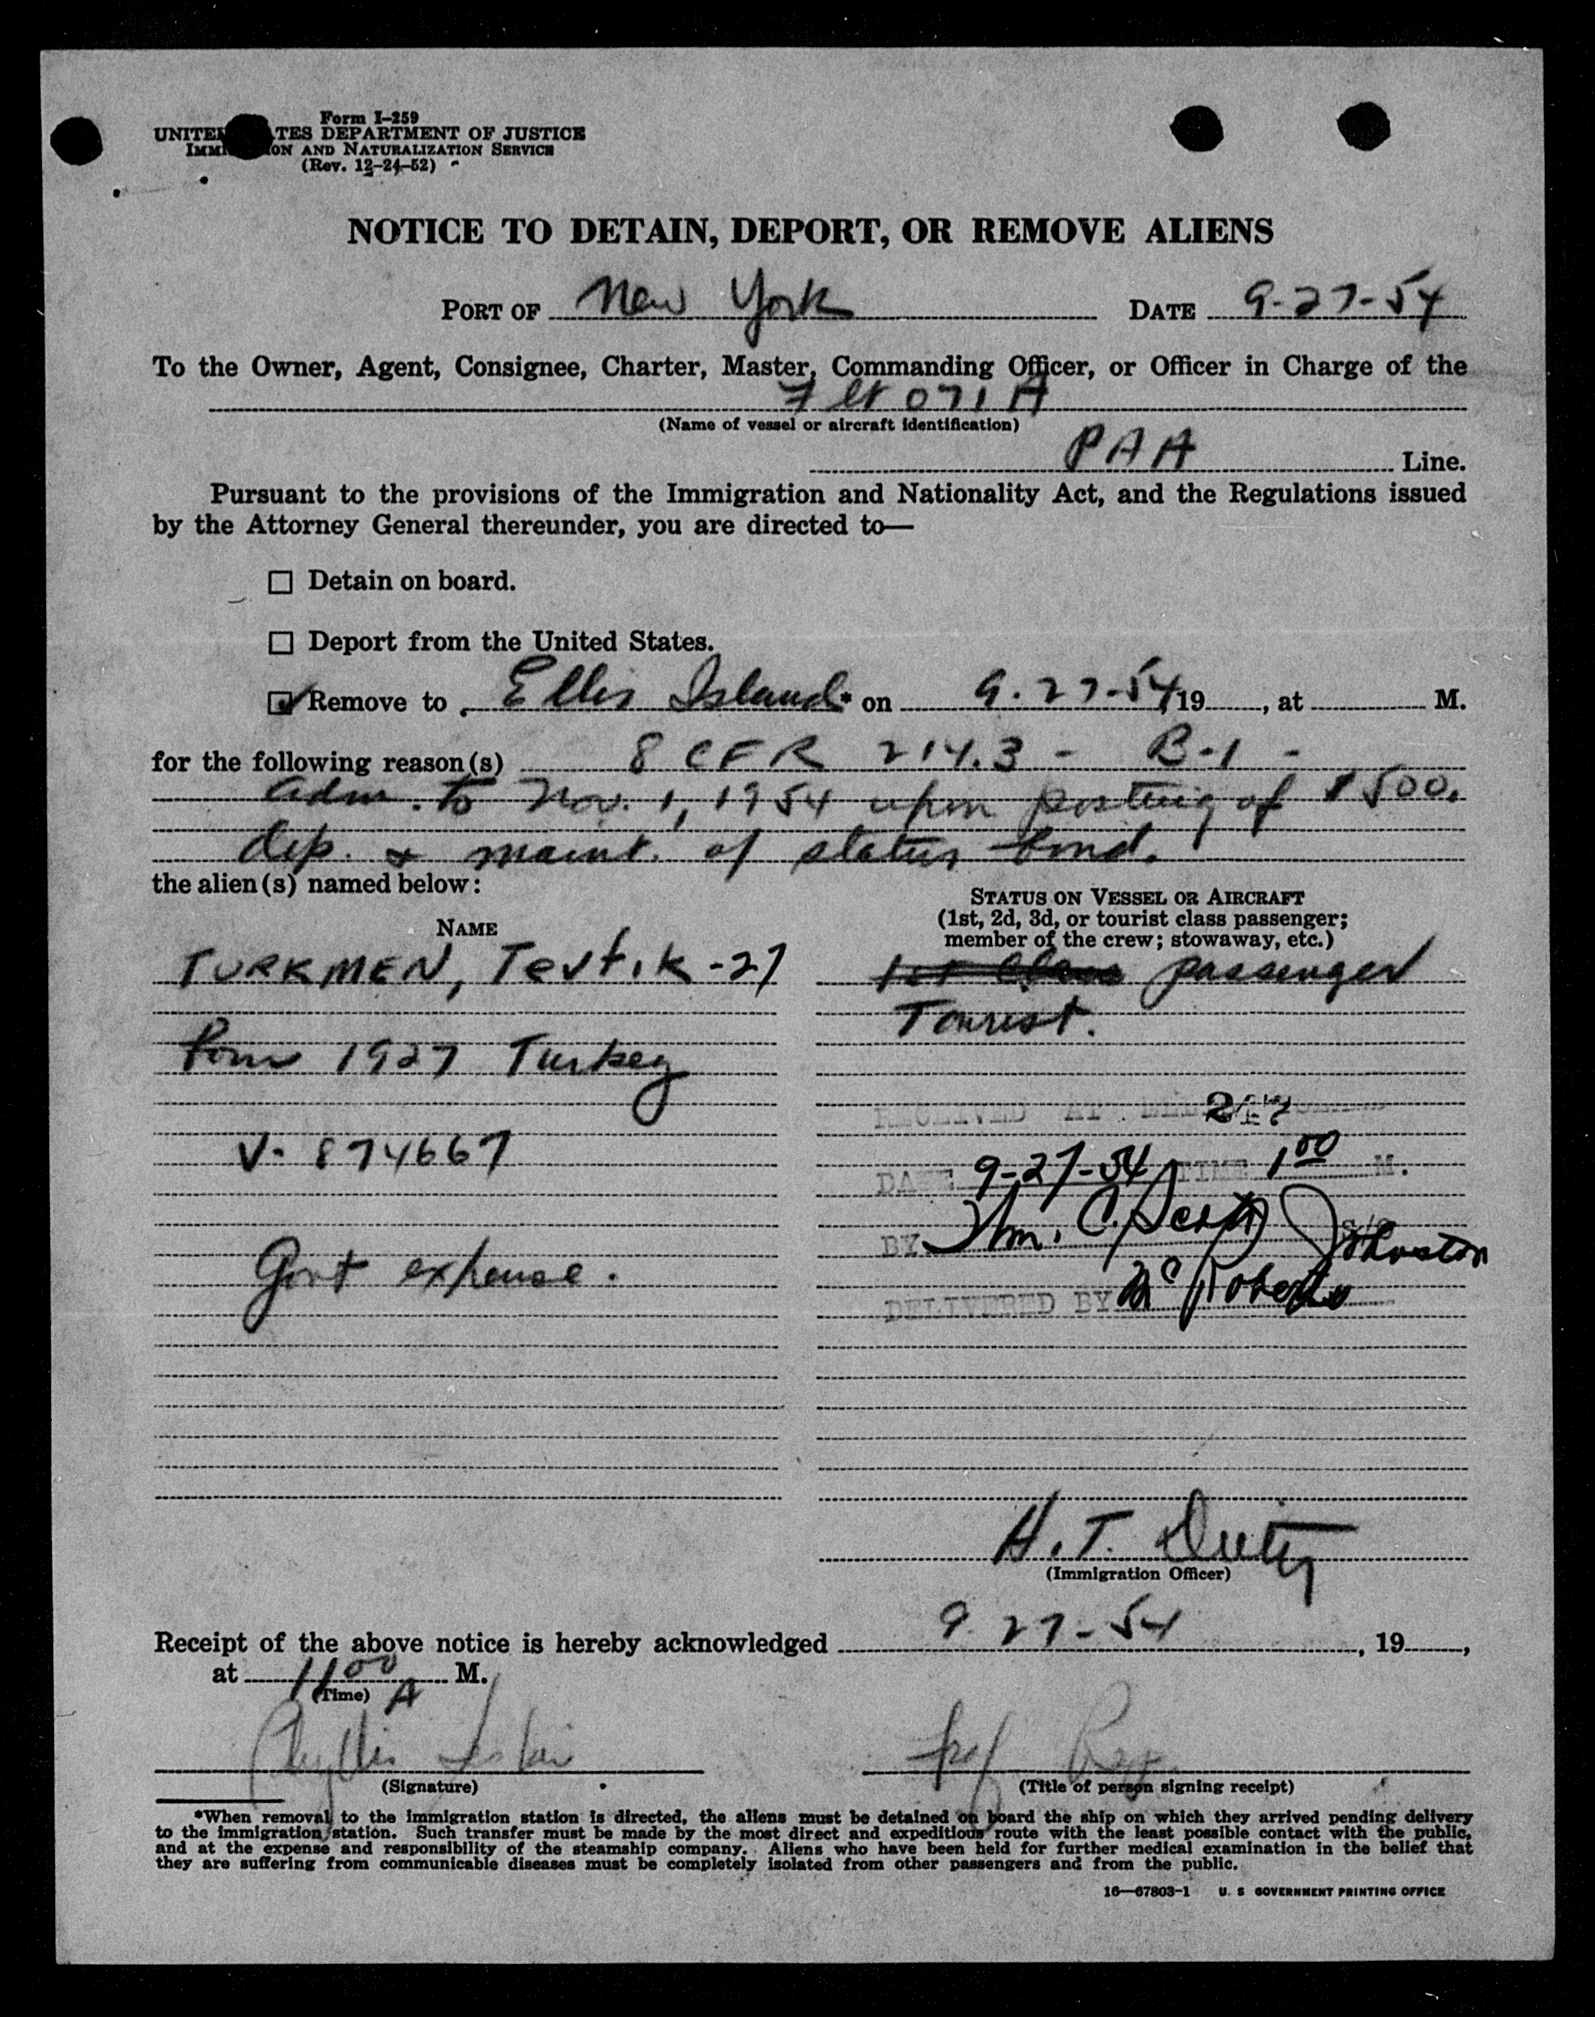 Form I-259
UNITE TES DEPARTMENT OF JUSTICE
IMMI ON AND NATURALIZATION SERVICE
(Rev. 12-24-52)
NOTICE TO DETAIN, DEPORT, OR REMOVE ALIENS
PORT OF New York DATE 9-27-54
To the Owner, Agent, Consignee, Charter, Master, Commanding Officer, or Officer in Charge of the
Flt 071 A
(Name of vessel or aircraft identification)
PAA Line.
Pursuant to the provisions of the Immigration and Nationality Act, and the Regulations issued
by the Attorney General thereunder, you are directed to—
Detain on board.
Deport from the United States.
Remove to Ellis Island* on 9-27-54, 19, at M.
for the following reason(s) 8 CFR 214.3 - B-1 -
adm. to Nov. 1, 1954 upon posting of $500.
dep. & maint. of status bond.
the alien(s) named below:
STATUS ON VESSEL OR AIRCRAFT
(1st, 2d, 3d, or tourist class passenger;
member of the crew; stowaway, etc.)
NAME
TURKMEN, Tevfik -27
1st Class passenger
Tourist.
born 1927 Turkey
RECEIVED AT 247
V- 874667
DATE 9-27-54 TIME 1 00 M.
BY Wm. C. Scott Johnston
Govt expense.
DELIVERED BY Mc Roberts
H. T.
(Immigration Officer)
Receipt of the above notice is hereby acknowledged 9-27-54, 19,
at 11 00 A M.
(Time)
Phyllis
(Signature)
(Title of person signing receipt)
*When removal to the immigration station is directed, the aliens must be detained on board the ship on which they arrived pending delivery
to the immigration station. Such transfer must be made by the most direct and expeditious route with the least possible contact with the public,
and at the expense and responsibility of the steamship company. Aliens who have been held for further medical examination in the belief that
they are suffering from communicable diseases must be completely isolated from other passengers and from the public.
16—67803-1 U. S GOVERNMENT PRINTING OFFICE